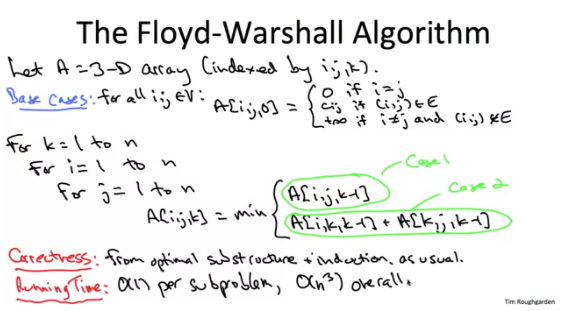 The Floyd-Warshall Algorithm
Let A = 3-D array (indexed by i,j,k).
Base Cases: for all i,j ∈ V: A[i,j,0] = { 0 if i=j
cij if (i,j) ∈ E
+∞ if i≠j and (i,j) ∉ E
For k = 1 to n
For i = 1 to n
For j = 1 to n
Case 1
A[i,j,k] = min { A[i,j,k-1]
Case 2
A[i,k,k-1] + A[k,j,k-1]
Correctness: from optimal substructure + induction, as usual.
Running Time: O(1) per subproblem, O(n³) overall.
Tim Roughgarden